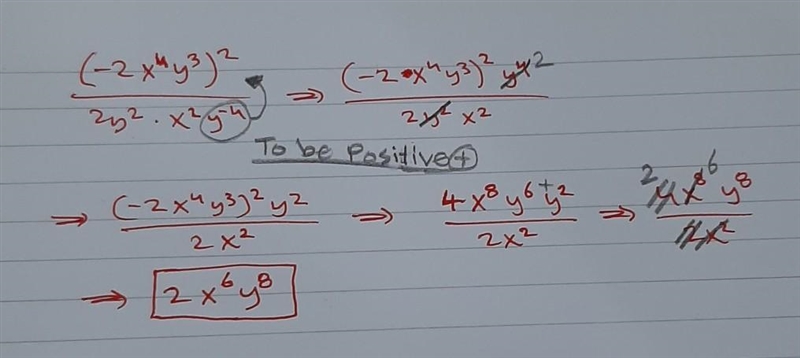 (-2x⁴y³)² / 2y² · x² y⁻⁴ ⇒ (-2·x⁴y³)² y⁴ ² / 2 y² x²
To be Positive +
⇒ (-2x⁴y³)² y² / 2x² ⇒ 4x⁸y⁶⁺y² / 2x² ⇒ ² 4x⁸ ⁶ y⁸ / 2x²
⇒ 2x⁶y⁸